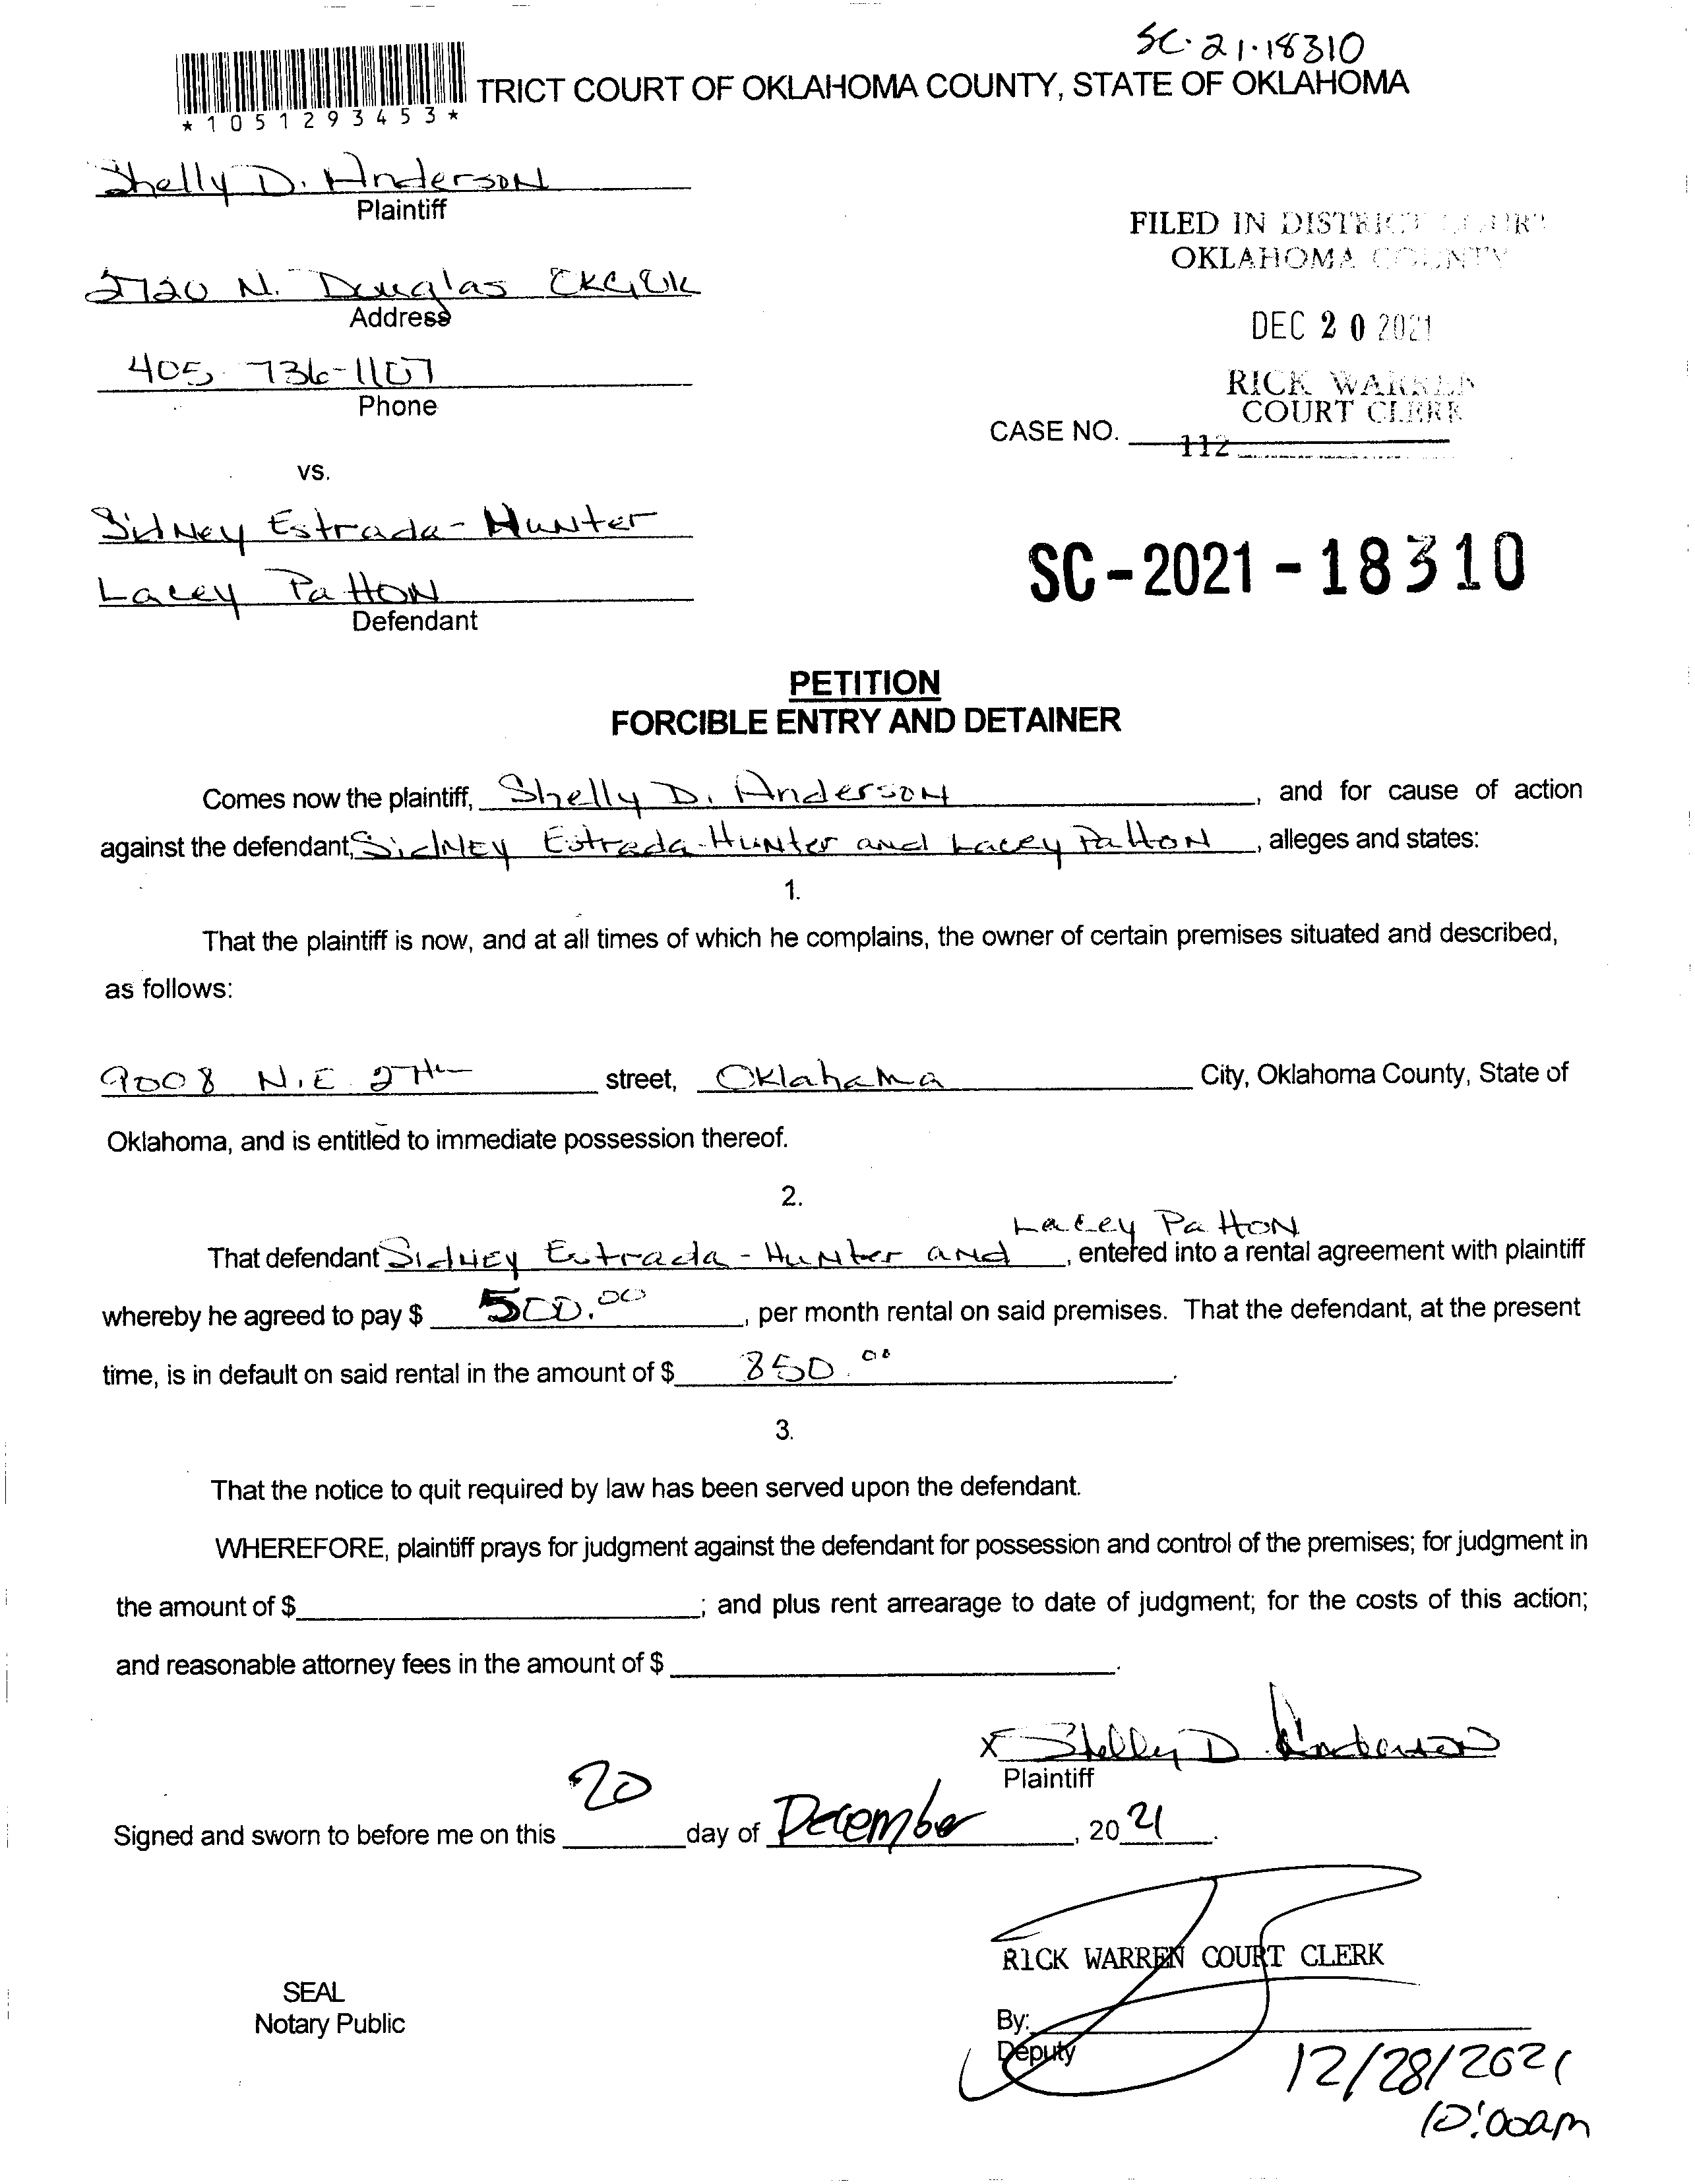 SC-21-18310
TRICT COURT OF OKLAHOMA COUNTY, STATE OF OKLAHOMA
*1051293453*
Shelly D. Anderson
Plaintiff
2720 N. Douglas OKC, OK
Address
405-736-1107
Phone
vs.
Sidney Estrada-Hunter
Lacey Patton
Defendant
FILED IN DISTRICT COURT
OKLAHOMA COUNTY
DEC 20 2021
RICK WARREN
COURT CLERK
CASE NO.
112
SC-2021-18310
PETITION
FORCIBLE ENTRY AND DETAINER
Comes now the plaintiff, Shelly D. Anderson, and for cause of action
against the defendant, Sidney Estrada-Hunter and Lacey Patton, alleges and states:
1.
That the plaintiff is now, and at all times of which he complains, the owner of certain premises situated and described,
as follows:
9008 N.E. 27th street, Oklahama City, Oklahoma County, State of
Oklahoma, and is entitled to immediate possession thereof.
2.
Lacey Patton
That defendant Sidney Estrada-Hunter and, entered into a rental agreement with plaintiff
whereby he agreed to pay $ 500.00, per month rental on said premises. That the defendant, at the present
time, is in default on said rental in the amount of $ 850.00.
3.
That the notice to quit required by law has been served upon the defendant.
WHEREFORE, plaintiff prays for judgment against the defendant for possession and control of the premises; for judgment in
the amount of $; and plus rent arrearage to date of judgment; for the costs of this action;
and reasonable attorney fees in the amount of $.
X Shelly D Anderson
Plaintiff
Signed and sworn to before me on this 20 day of December, 2021.
RICK WARREN COURT CLERK
SEAL
Notary Public
By:
Deputy
12/28/2021
10:00am